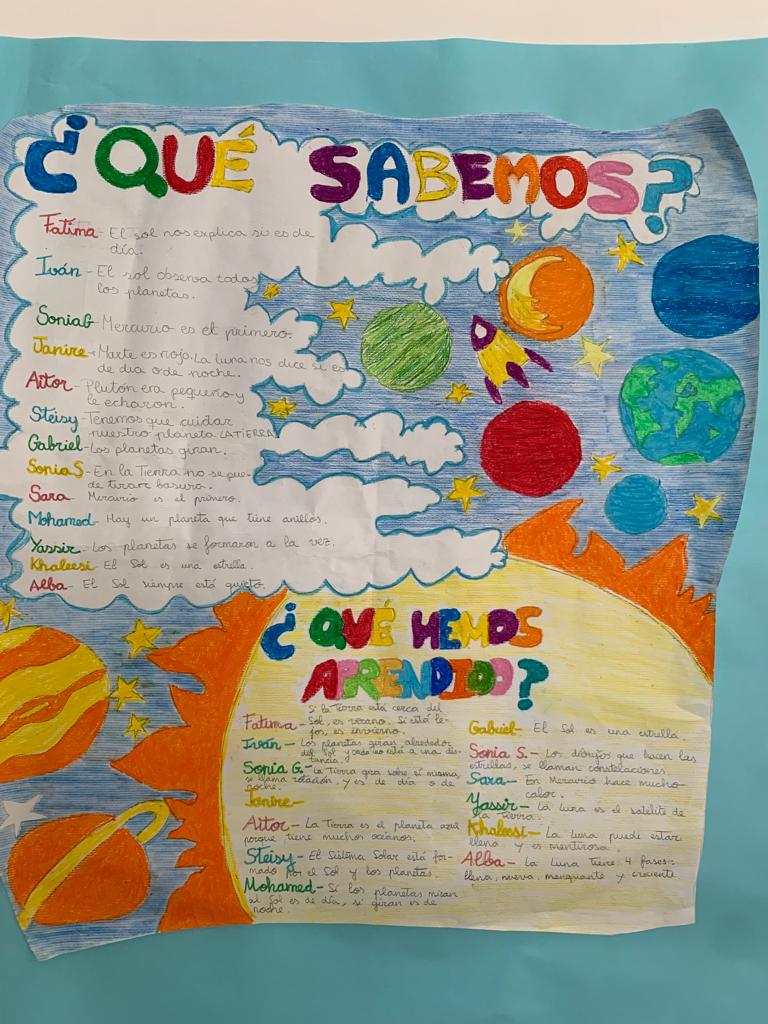 ¿QUÉ SABEMOS?
Fatima- El sol nos explica si es de
día.
Iván - El sol observa todos
los planetas.
Sonia G- Mercurio es el primero.
Janire- Marte es rojo. La luna nos dice si es
de día o de noche.
Aitor- Plutón era pequeño y
le echaron.
Steisy- Tenemos que cuidar
nuestro planeta LA TIERRA
Gabriel- Los planetas giran.
Sonia S- En la Tierra no se pue-
de tirar basura.
Sara- Mercurio es el primero.
Mohamed- Hay un planeta que tiene anillos.
Yassir- Los planetas se formaron a la vez.
Khaleesi- El Sol es una estrella.
Alba- El Sol siempre está quieto.
¿QUÉ HEMOS
APRENDIDO?
Fatima- Si la Tierra está cerca del
Sol, es verano. Si está le-
jos, es invierno.
Iván- Los planetas giran alrededor
del Sol y cada uno está a una dis-
tancia.
Sonia G.- La Tierra gira sobre sí misma,
se llama rotación, y es de día o de
noche.
Janire-
Aitor- La Tierra es el planeta azul
porque tiene muchos océanos.
Steisy- El Sistema Solar está for-
mado por el Sol y los planetas.
Mohamed- Si los planetas miran
al Sol es de día, si giran es de
noche.
Gabriel- El Sol es una estrella.
Sonia S.- Los dibujos que hacen las
estrellas, se llaman constelaciones.
Sara- En Mercurio hace mucho
calor.
Yassir- La luna es el satélite de
la Tierra.
Khaleesi- La Luna puede estar
llena y es mentirosa.
Alba- La Luna tiene 4 fases:
llena, nueva, menguante y creciente.